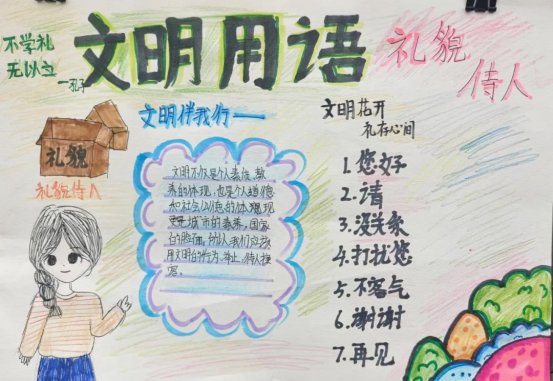 不学礼
无以立
—孔子
文明用语
礼貌
待人
礼貌
礼貌待人
文明伴我们——
文明不仅是个人素养、教
养的体现,也是个人道德
和社气公德的体现现
更是城市的素养,国家
的脸面,所以我们应该
用文明的行为、举止、待人接
客。
文明花开
礼存心间
1.您好
2.请
3.没关系
4.打扰您
5.不客气
6.谢谢
7.再见